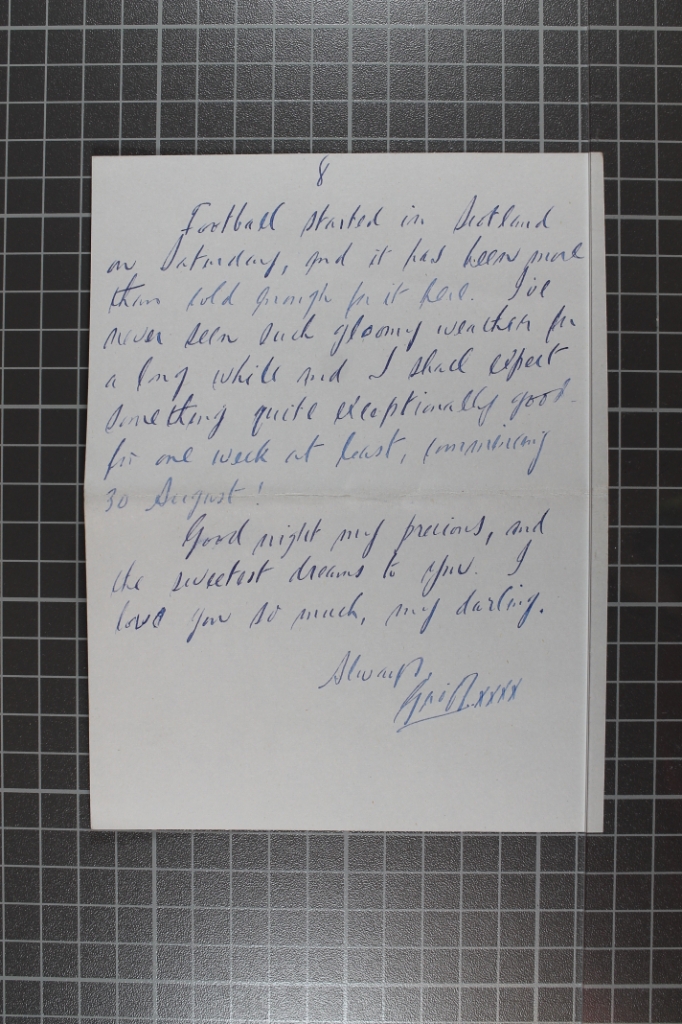 8
Football started in Scotland
on Saturday, and it has been more
than cold enough for it here. I've
never seen such gloomy weather for
a long while and I shall expect
something quite exceptionally good
for one week at least, commencing
30 August!
Good night my precious, and
the sweetest dreams to you. I
love you so much, my darling.
Always,
xxxx